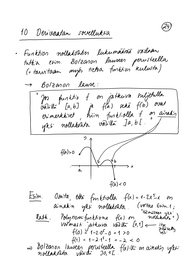 10 Derivaatan sovelluksia
Funktion nollakohdan lukumäärää voidaan
tutkia esim Bolzanon lauseen perusteella
(+ tarvitaan myös tietoa funktion kulusta)
→ Bolzanon lause
"Jos funktio f on jatkuva suljetulla
välillä [a,b] ja f(a) sekä f(b) ovat
erimerkkiset niin funktiolla f on ainakin
yksi nollakohta välillä ]a,b["
f(a)>0
f(b)<0
Esim Osoita, että funktiolla f(x) =
ainakin yksi nollakohta.
Ratk. Polynomifunktiona f(x) on
jatkuva välillä [0,1]
f(0) = 1 > 0
f(1) = -2 < 0
Bolzanon lauseen perusteella f(x):llä on ainakin yksi
nollakohta välillä ]0,1[